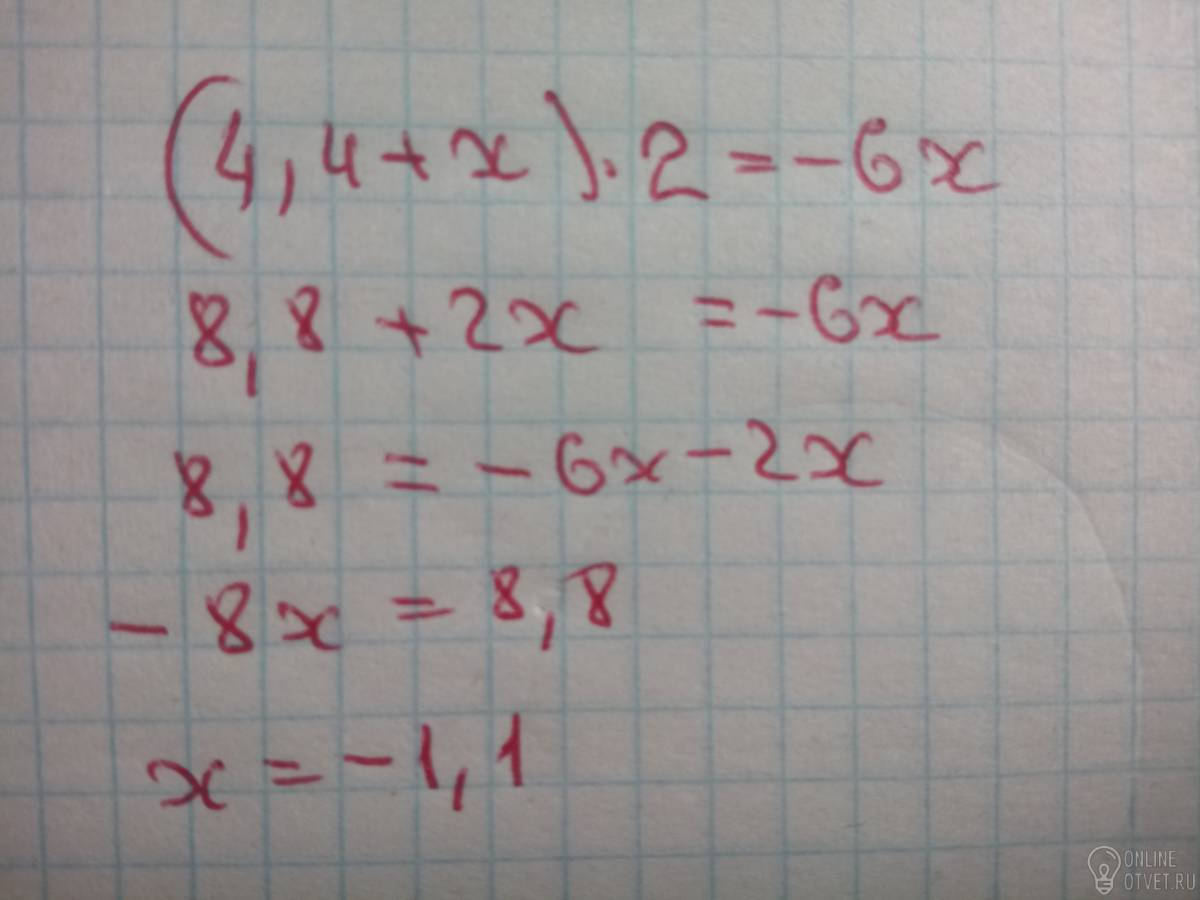 (4,4+x)·2=-6x
8,8+2x =-6x
8,8=-6x-2x
-8x=8,8
x=-1,1
ONLINE
OTVET.RU